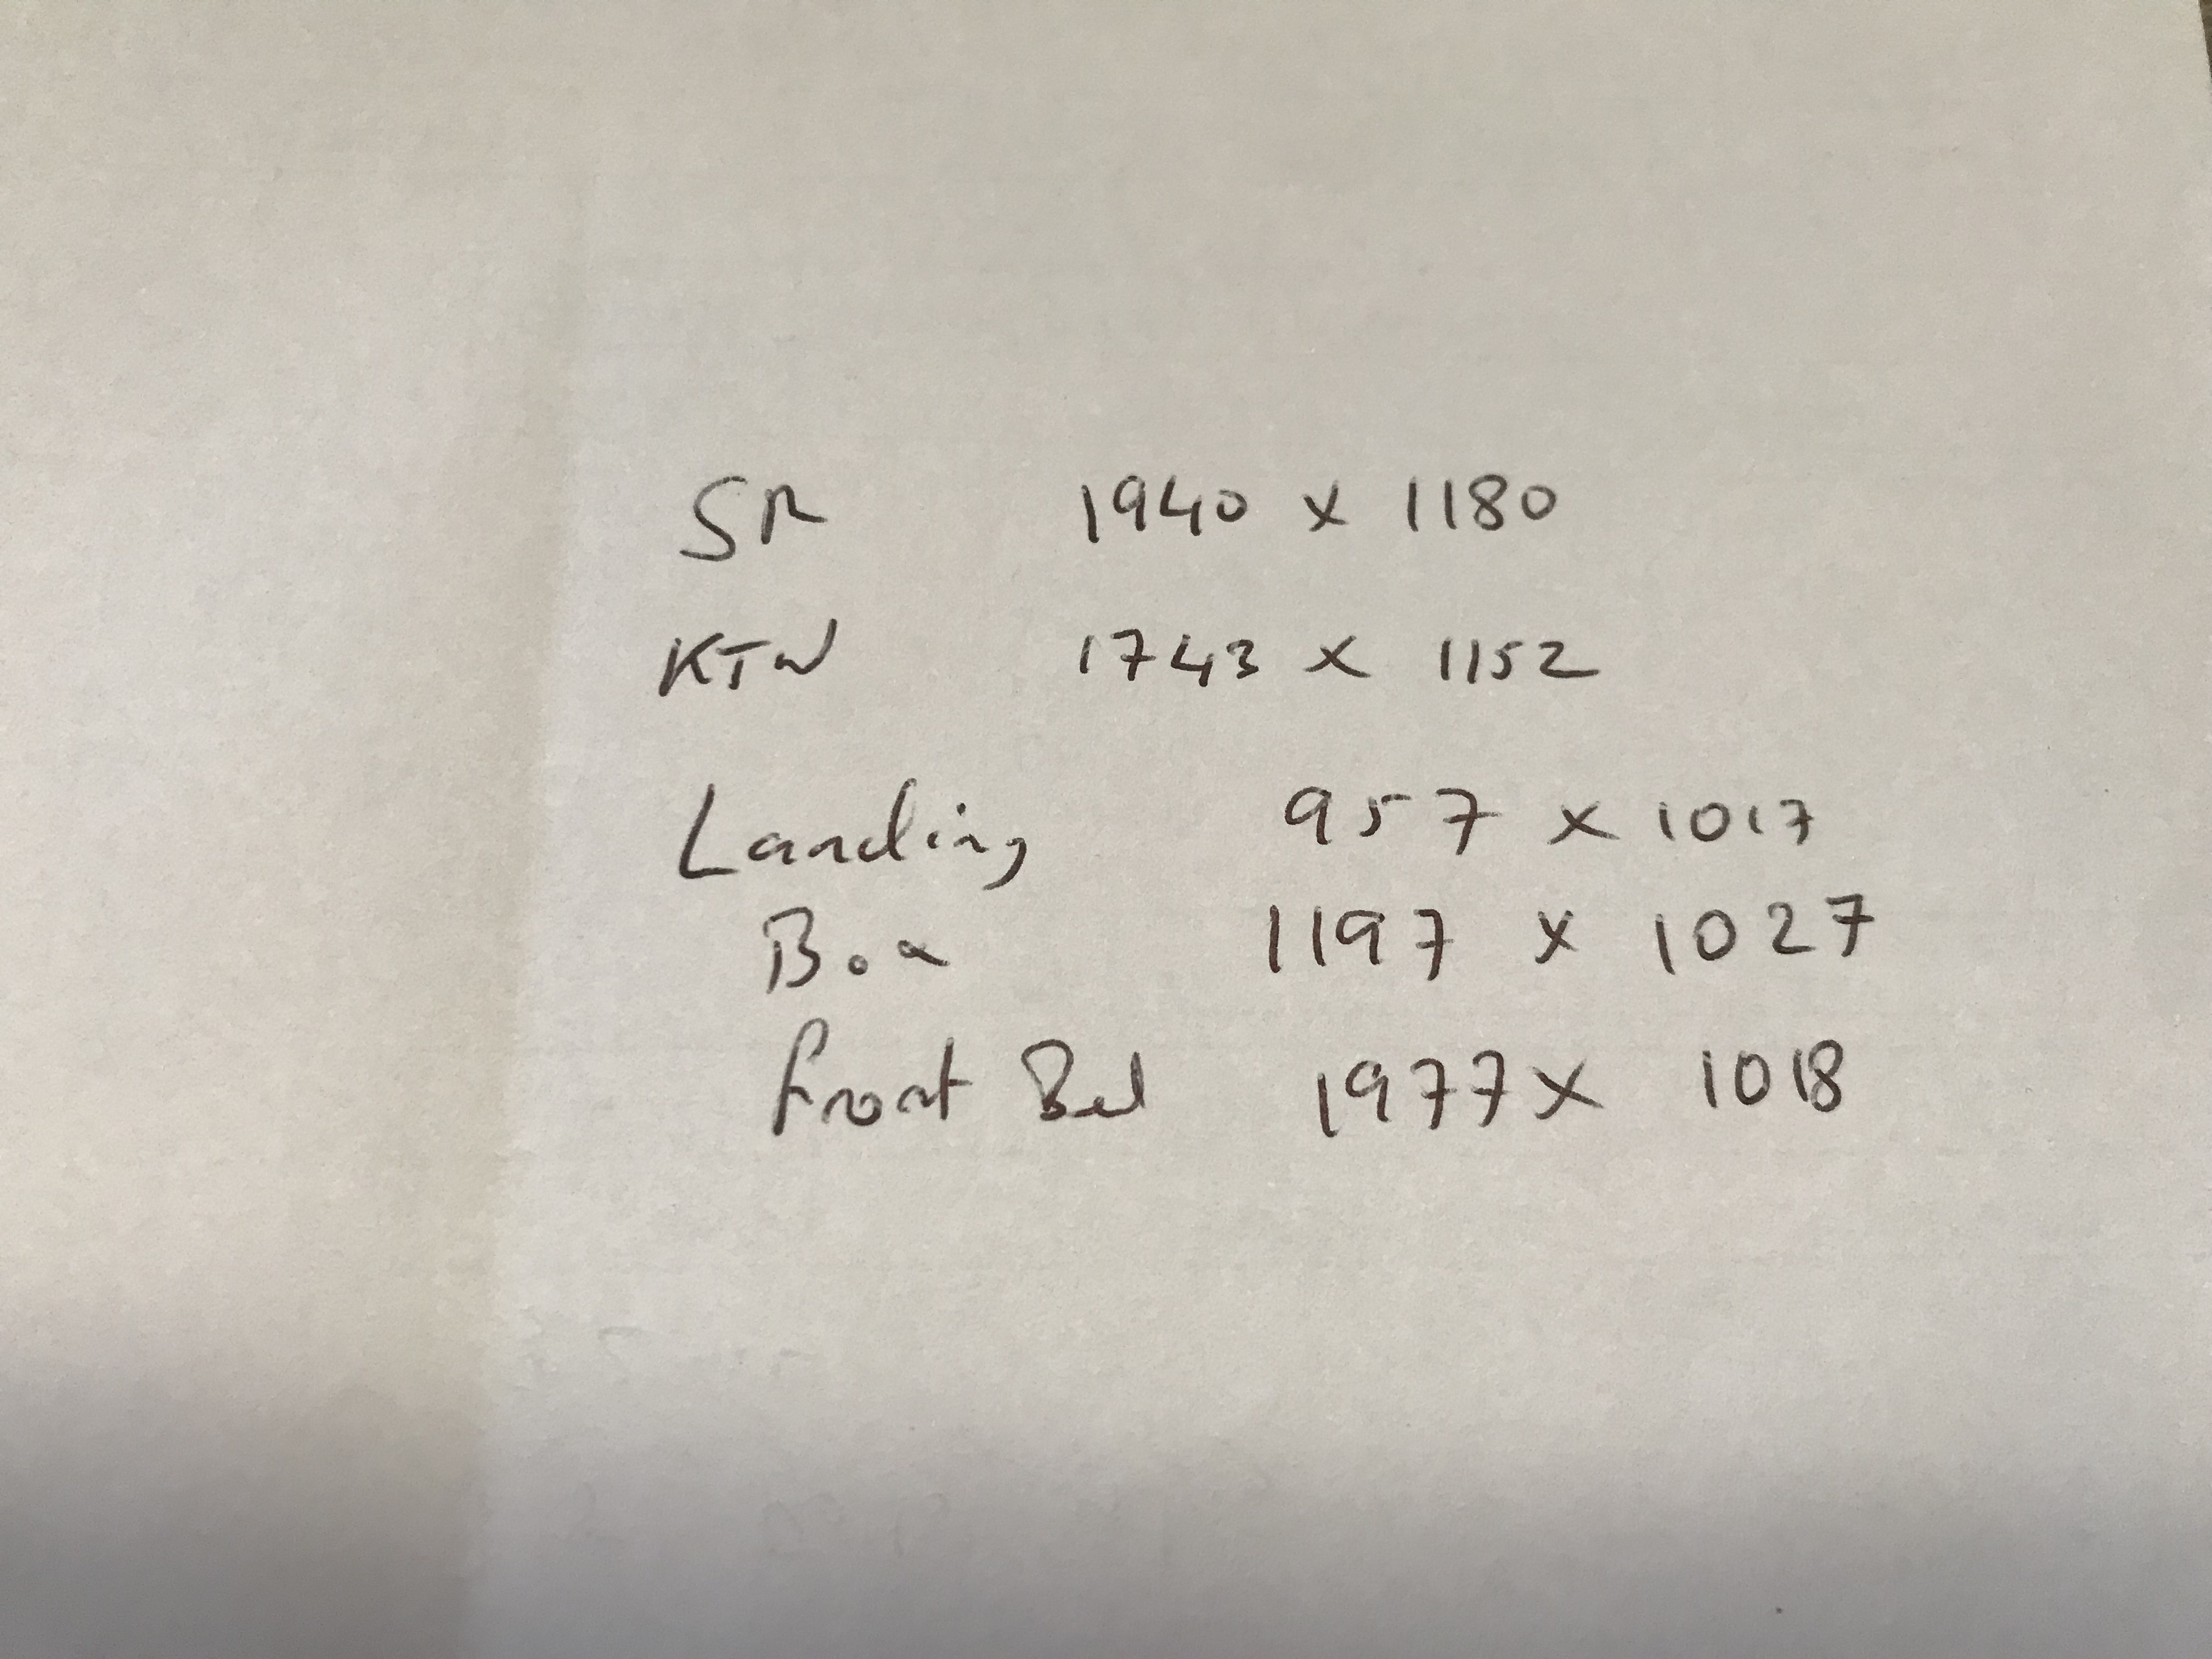 SR 1940 x 1180
KTN 1743 x 1152
Landing 957 x 1017
Box 1197 x 1027
front Bed 1977 x 1018